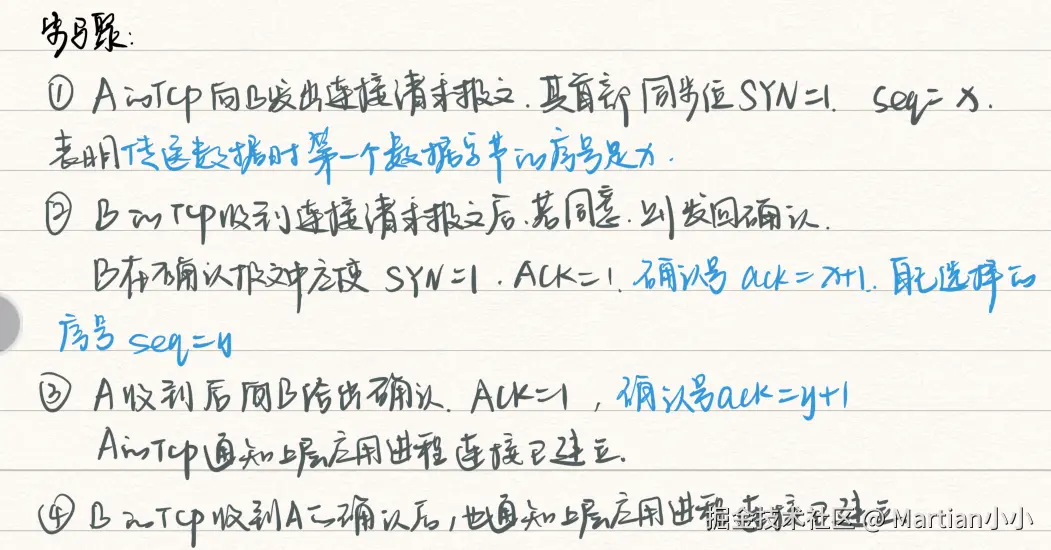 步骤:
① A的TCP向B发出连接请求报文.其首部同步位SYN=1. seq=x.
表明传送数据时第一个数据字节的序号是x.
② B的TCP收到连接请求报文后.若同意.则发回确认.
B在确认报文中应使 SYN=1. ACK=1. 确认号 ack=x+1. 自己选择的
序号 seq=y
③ A收到后向B给出确认. ACK=1, 确认号ack=y+1
A的TCP通知上层应用进程连接已建立.
④ B的TCP收到A的确认后,也通知上层应用进程连接已建立
掘金技术社区 @ Martian小小